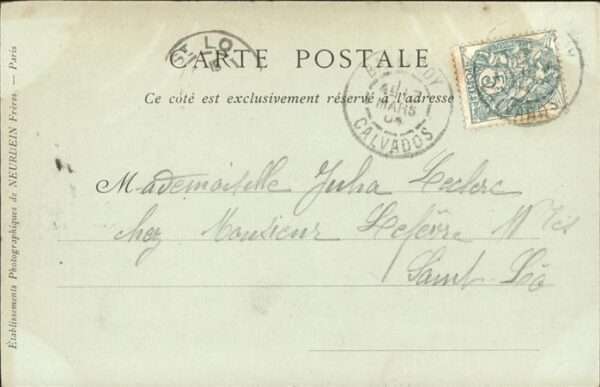 CARTE POSTALE
Ce côté est exclusivement réservé à l'adresse
MARS
04
CALVADOS
5
MARS
Mademoiselle Julia Leclerc
chez Monsieur Lefèvre
Saint-Lô
Établissements Photographiques de NEURDEIN Frères. — Paris